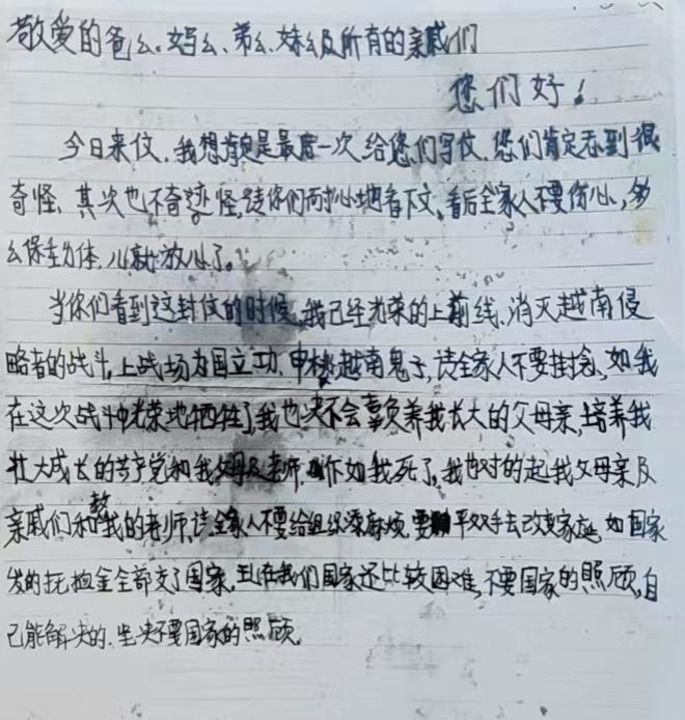 敬爱的爸么.妈么、弟么、妹么及所有的亲戚们
您们好！
今日来仪.我想肯定是最后一次给您们写仪.您们肯定感到很
奇怪、其次也不奇怪,请你们耐心地看下文,看后全家人不要伤心,多
么保重力体,儿就放心了。
当你们看到这封仪的时候,我已经光荣的上前线.消灭越南侵
略者的战斗,上战场为国立功.申枪越南鬼子,请全家人不要挂念,如我
在这次战斗中光荣地牺牲了,我也决不会辜负养我长大的父母亲,培养我
壮大成长的共产党和我父母及老师.假如我死了,我也对的起我父母亲及
亲戚们和教我的老师,请全家人不要给组织添麻烦.要平双手去改变家庭.如国家
发的抚恤金全部交了国家.现在我们国家还比较困难,不要国家的照顾,自
己能解决的.坚决不要国家的照顾.